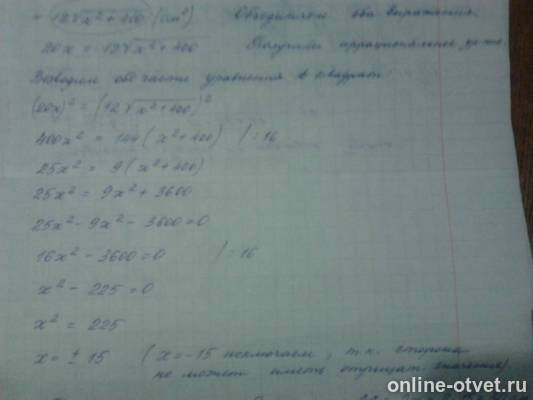 12√x²+400 (см²) Объединяем оба выражения.
20x = 12√x²+400 Получим иррациональное ур-ие.
Возводим обе части уравнения в квадрат:
(20x)² = (12√x²+400)²
400x² = 144(x²+400) /:16
25x² = 9(x²+400)
25x² = 9x²+3600
25x²-9x²-3600=0
16x²-3600=0 /:16
x²-225=0
x² = 225
x = ±15 (x=-15 исключаем, т.к. сторона
не может иметь отрицат. значение).
online-otvet.ru